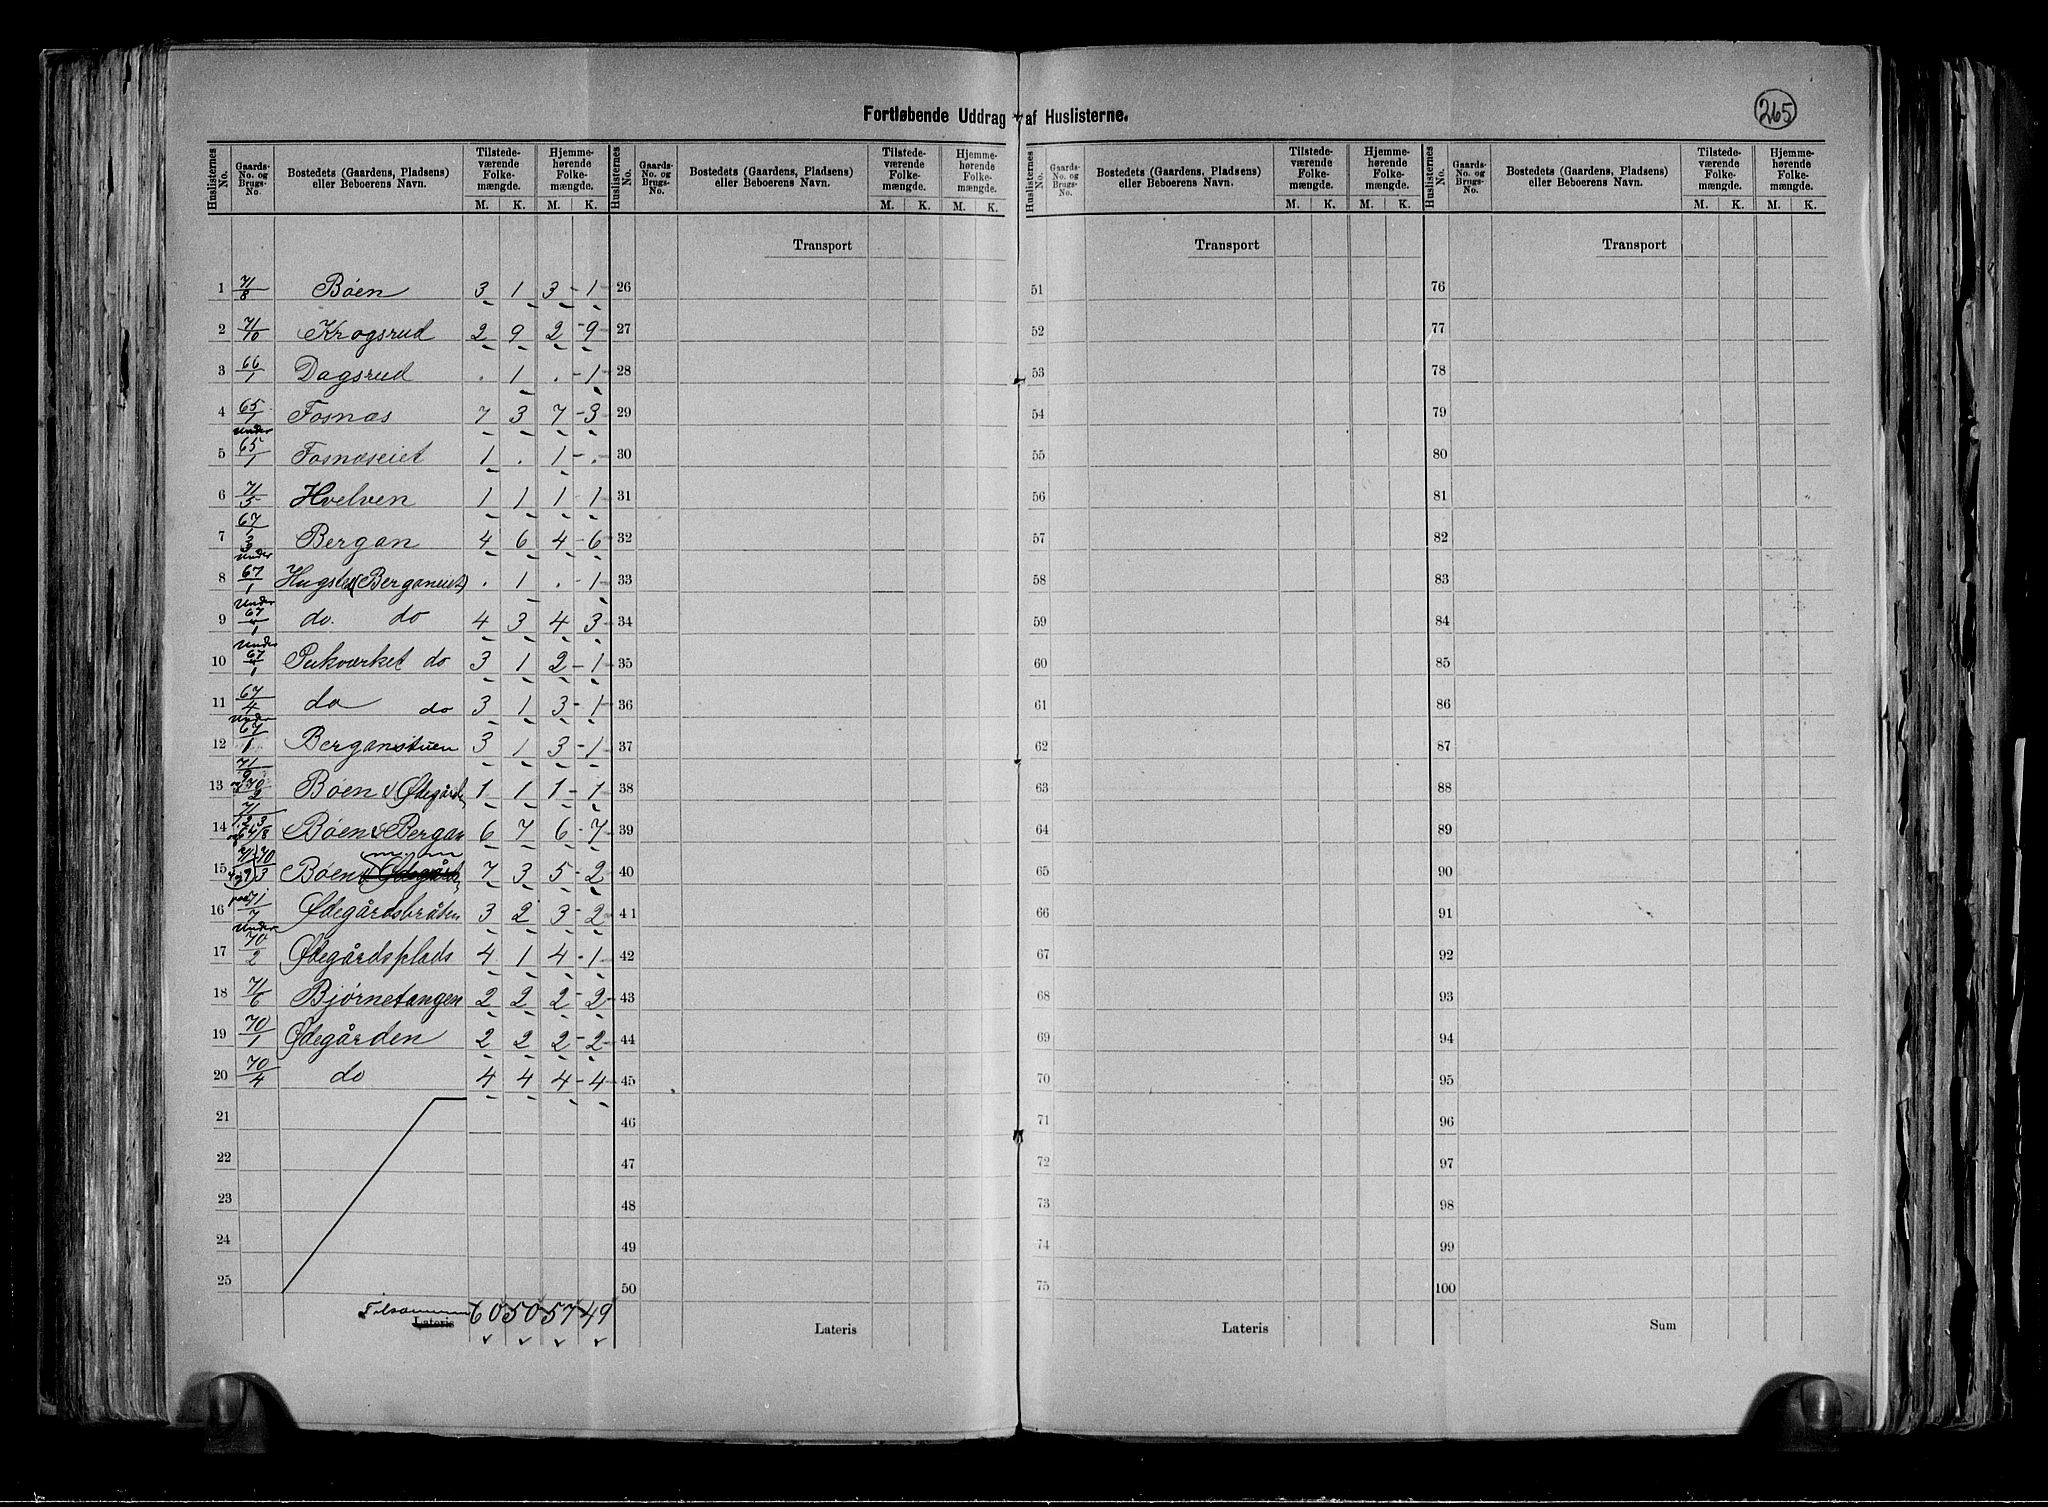 Fortløbende Uddrag af Huslisterne.
265
Huslisternes No. | Gaards-No. og Brugs-No. | Bostedets (Gaardens, Pladsens) eller Beboerens Navn. | Tilstedeværende Folkemængde. M. K. | Hjemmehørende Folkemængde. M. K.
1 71/8 Bøen 3 1 3 - 1
2 71/10 Krogsrud 2 9 2 - 9
3 66/1 Dagsrud . 1 . - 1
4 65/1 Fosnæs 7 3 7 - 3
5 Under 65/1 Fosnæseiet 1 . 1 - .
6 71/5 Hvelven 1 1 1 - 1
7 67/3 Bergan 4 6 4 - 6
8 Under 67/1 (Berganeiet) . 1 . - 1
9 Under 67/1 do. do 4 3 4 - 3
10 Under 67/1 Pukværket do 3 1 2 - 1
11 67/4 do do 3 1 3 - 1
12 Under 67/1 Berganstuen 3 1 3 - 1
13 71/9 70/2 Bøen & Ødegård 1 1 1 - 1
14 71/1,2,3 Bøen & Bergan 6 7 6 - 7
15 Bøen 7 3 5 - 2
16 71/7 Ødegårdsbråten 3 2 3 - 2
17 Under 70/2 Ødegårdsplads 4 1 4 - 1
18 71/6 Bjørnetangen 2 2 2 - 2
19 70/1 Ødegården 2 2 2 - 2
20 70/4 do 4 4 4 - 4
21
22
23
24
25
Tilsammen 60 50 57 49
Lateris
Huslisternes No. | Gaards-No. og Brugs-No. | Bostedets (Gaardens, Pladsens) eller Beboerens Navn. | Tilstedeværende Folkemængde. M. K. | Hjemmehørende Folkemængde. M. K.
Transport
26
27
28
29
30
31
32
33
34
35
36
37
38
39
40
41
42
43
44
45
46
47
48
49
50
Lateris
Huslisternes No. | Gaards-No. og Brugs-No. | Bostedets (Gaardens, Pladsens) eller Beboerens Navn. | Tilstedeværende Folkemængde. M. K. | Hjemmehørende Folkemængde. M. K.
Transport
51
52
53
54
55
56
57
58
59
60
61
62
63
64
65
66
67
68
69
70
71
72
73
74
75
Lateris
Huslisternes No. | Gaards-No. og Brugs-No. | Bostedets (Gaardens, Pladsens) eller Beboerens Navn. | Tilstedeværende Folkemængde. M. K. | Hjemmehørende Folkemængde. M. K.
Transport
76
77
78
79
80
81
82
83
84
85
86
87
88
89
90
91
92
93
94
95
96
97
98
99
100
Sum